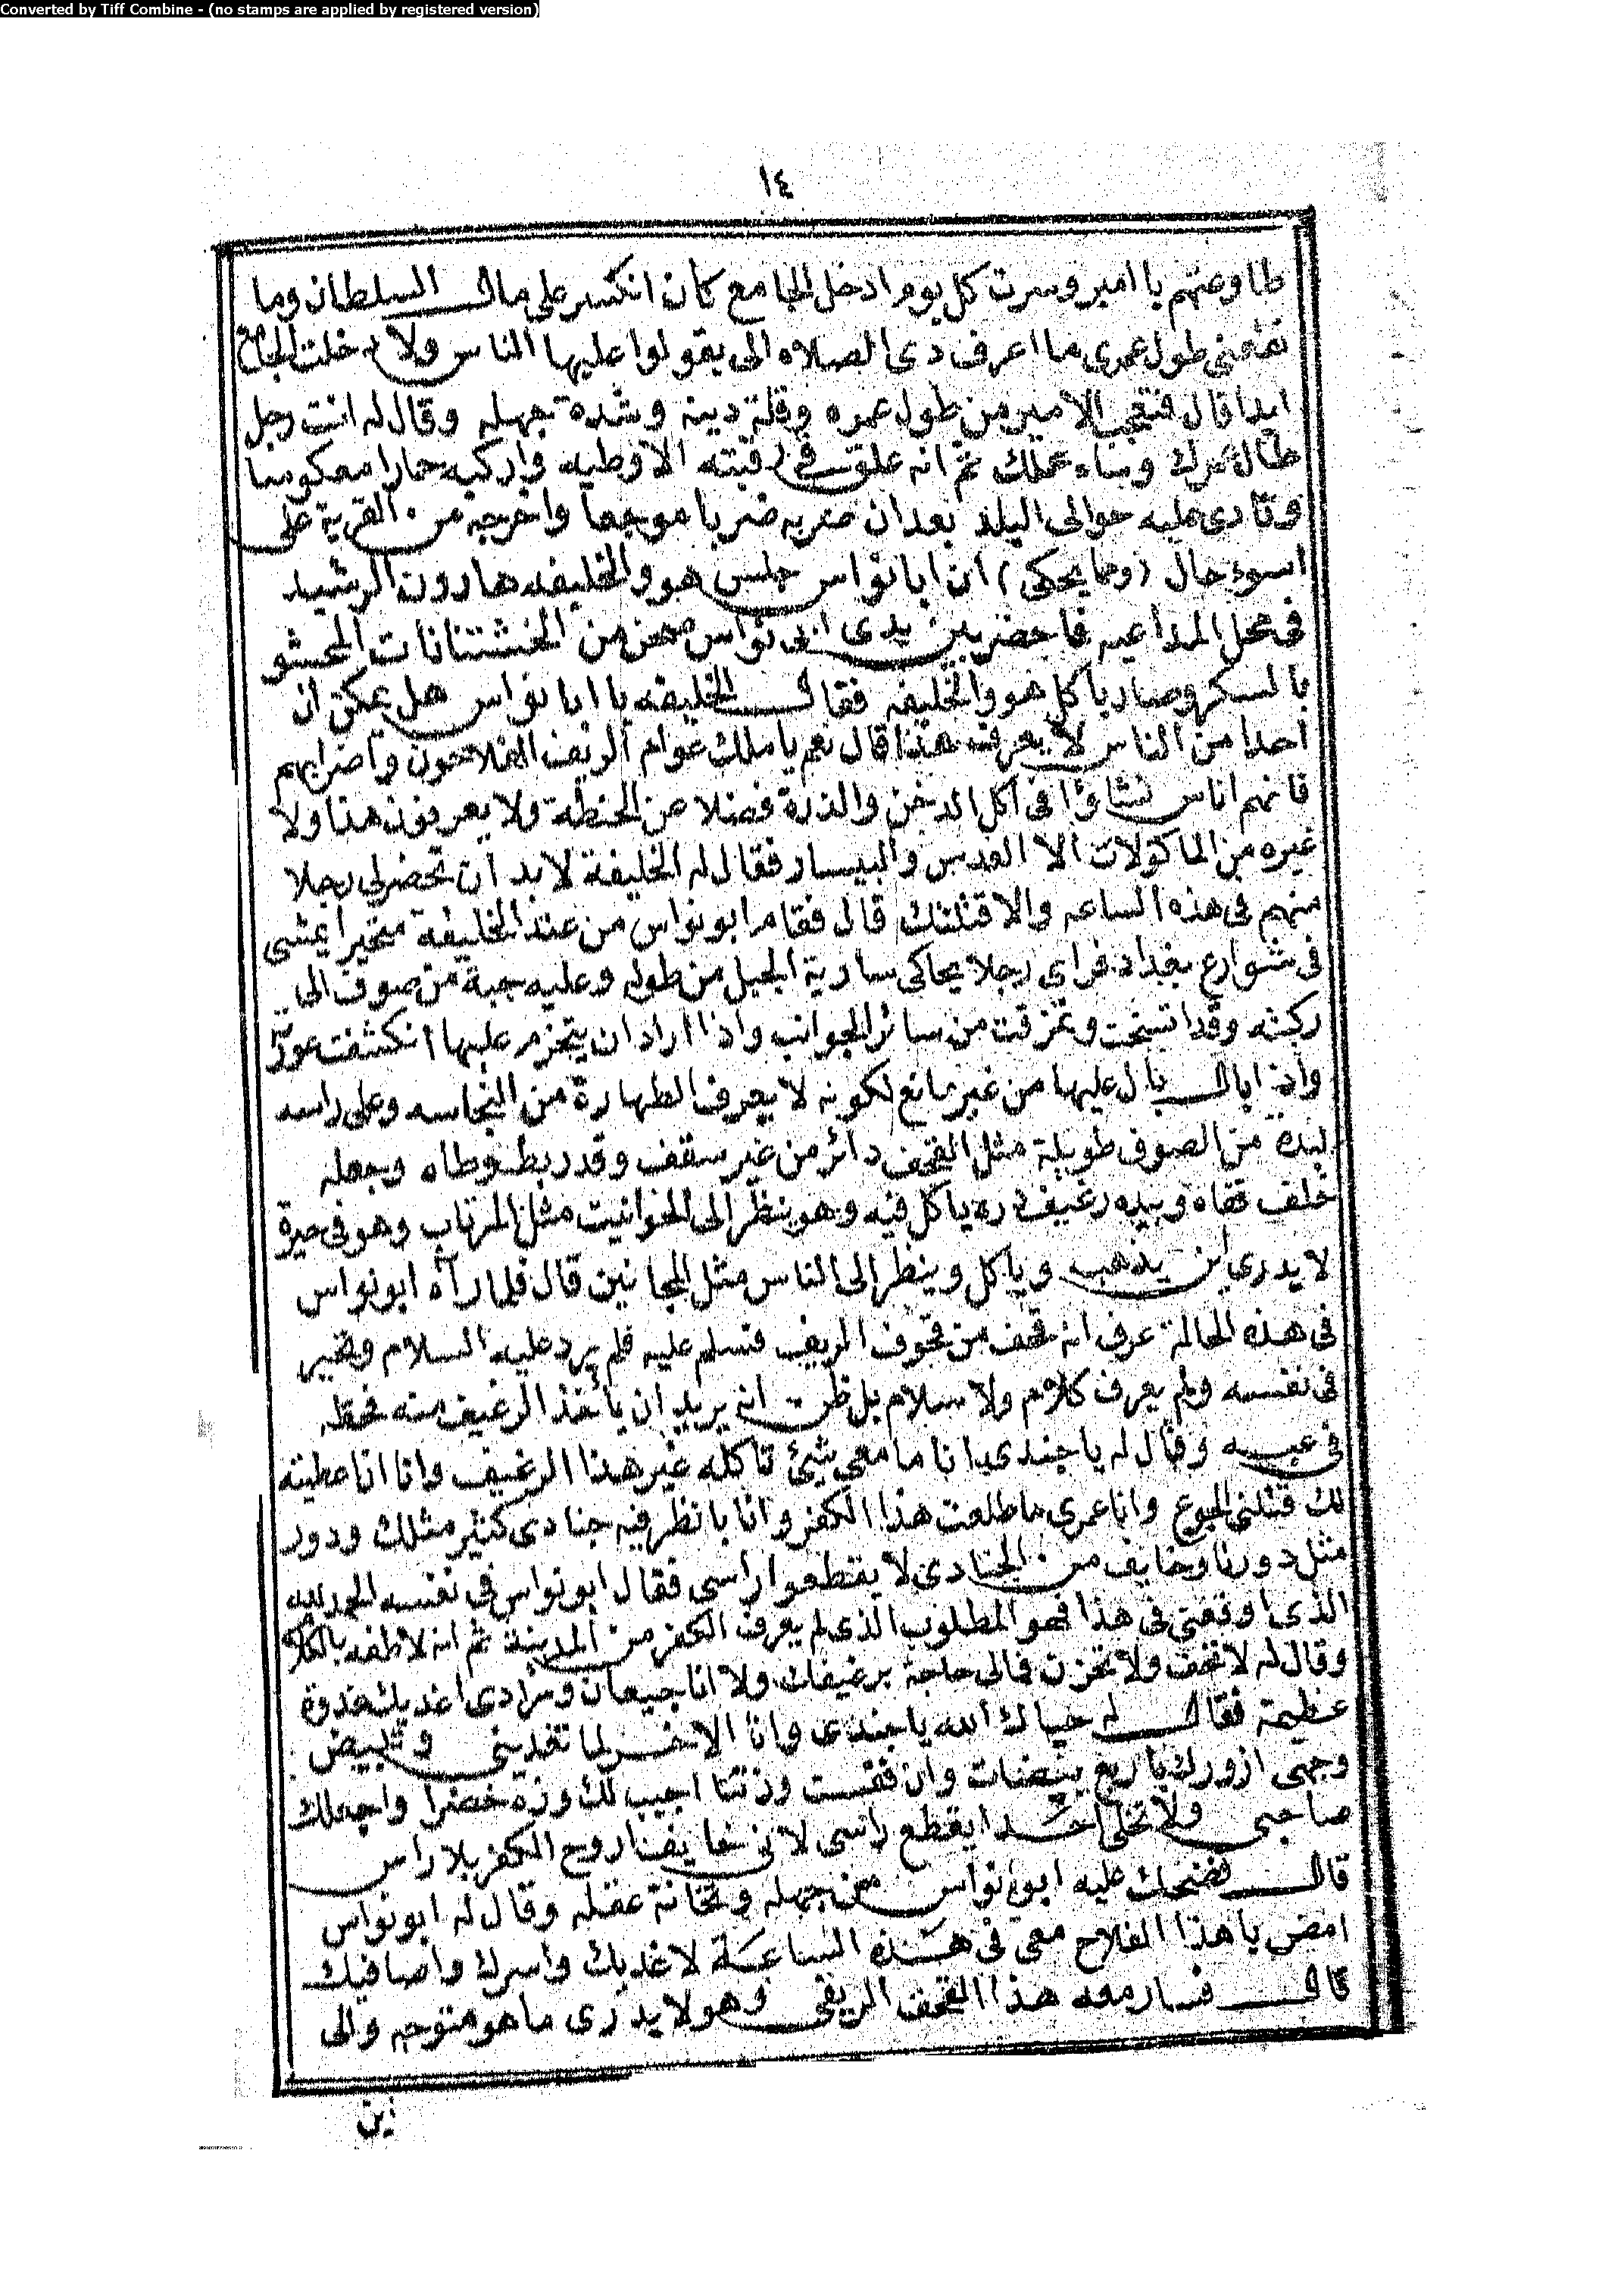 Converted by Tiff Combine - (no stamps are applied by registered version)
١٤
طاوعتهم يا امير وسرت كل يوم ادخل الجامع كان انكسر على مال السلطان وما
نفعنى طول عمرى ما اعرف دى الصلاه الى يقولوا عليها الناس ولا دخلت الجامع
ابدا قال فتعجب الامير من طول عمره وقلة دينه وشدة جهله وقال له انت رجل
طال عمرك وساء عملك ثم انه علق فى رقبته الاوطيه واركبه حمارا معكوسا
ونادى عليه حوالى البلد بعد ان ضربه ضربا موجعا واخرجه من القرية على
اسوء حال (ومما يحكى) ان ابا نواس جلس هو والخليفه هارون الرشيد
فى محل المداعبه فاحضر بين يدى ابى نواس صحن من الخشتنانات المحشو
بالسكر وصار ياكل هو والخليفه فقال الخليفه يا ابا نواس هل يمكن ان
احدا من الناس لا يعرف هذا قال نعم يا ملك عوام الريف الفلاحون واضرابهم
فانهم اناس نشاؤا فى اكل الدخن والذرة فضلا عن الحنطة ولا يعرفون هذا ولا
غيره من الماكولات الا العدس والبيسار فقال له الخليفة لا بد ان تحضر لى رجلا
منهم فى هذه الساعه والا قتلتك قال فقام ابو نواس من عند الخليفة متحيرا يمشى
فى شوارع بغداد فراى رجلا يحاكى سارية الجبل من طوله وعليه جبة من صوف الى
ركبته وقد اتسخت وتمزقت من سائر الجوانب واذا اراد ان يتحزم عليها انكشفت عورته
واذا بال بال عليها من غير مانع لكونه لا يعرف الطهارة من النجاسه وعلى راسه
لبدة من الصوف طويلة مثل القحف دائر من غير سقف وقد ربط وطاه وجعله
خلف قفاه وبيده رغيف دره ياكل فيه وهو ينظر الى الحوانيت مثل المرتاب وهو فى حيرة
لا يدرى اين يذهب وياكل وينظر الى الناس مثل المجانين قال فلما رآه ابو نواس
فى هذه الحالة عرف انه قحف من قحوف الريف فسلم عليه فلم يرد عليه السلام وتحير
فى نفسه ولم يعرف كلام ولا سلام بل ظن انه يريد ان يأخذ الرغيف منه فحطه
فى عبه وقال له يا جندى انا ما معى شيئ تاكله غير هذا الرغيف وانا ان اعطيته
لك قتلنى الجوع وانا عمرى ما طلعت هذا الكفر وانا بانظر فيه جنادى كثير مثلك ودور
مثل دورنا وخايف من الجنادى لا يقطعوا راسى فقال ابو نواس فى نفسه الحمد لله
الذى اوقعنى فى هذا فهو المطلوب الذى لم يعرف الكفر من المدينة ثم انه لاطفه بالكلام
وقال له لا تخف ولا تحزن فمالى حاجة برغيفك ولا انا جيعان ومرادى اغديك غدوة
عظيمة فقال له حياك الله يا جندى وانا الاخر لما تغدينى وتبيض
وجهى ازورك باربع بيضات وان فقست وزتنا اجيب لك وزه خضرا واجعلك
صاحبى ولا تخلى احدا يقطع راسى لانى خايف نا روح الكفر بلا راس
قال فضحك عليه ابو نواس من جهله وتخانة عقله وقال له ابو نواس
امض يا هذا الفلاح معى فى هذه الساعة لاغديك واسرك واصافيك
قال فسار معه هذا القحف الريفى وهو لا يدرى ما هو متوجه والى
اين